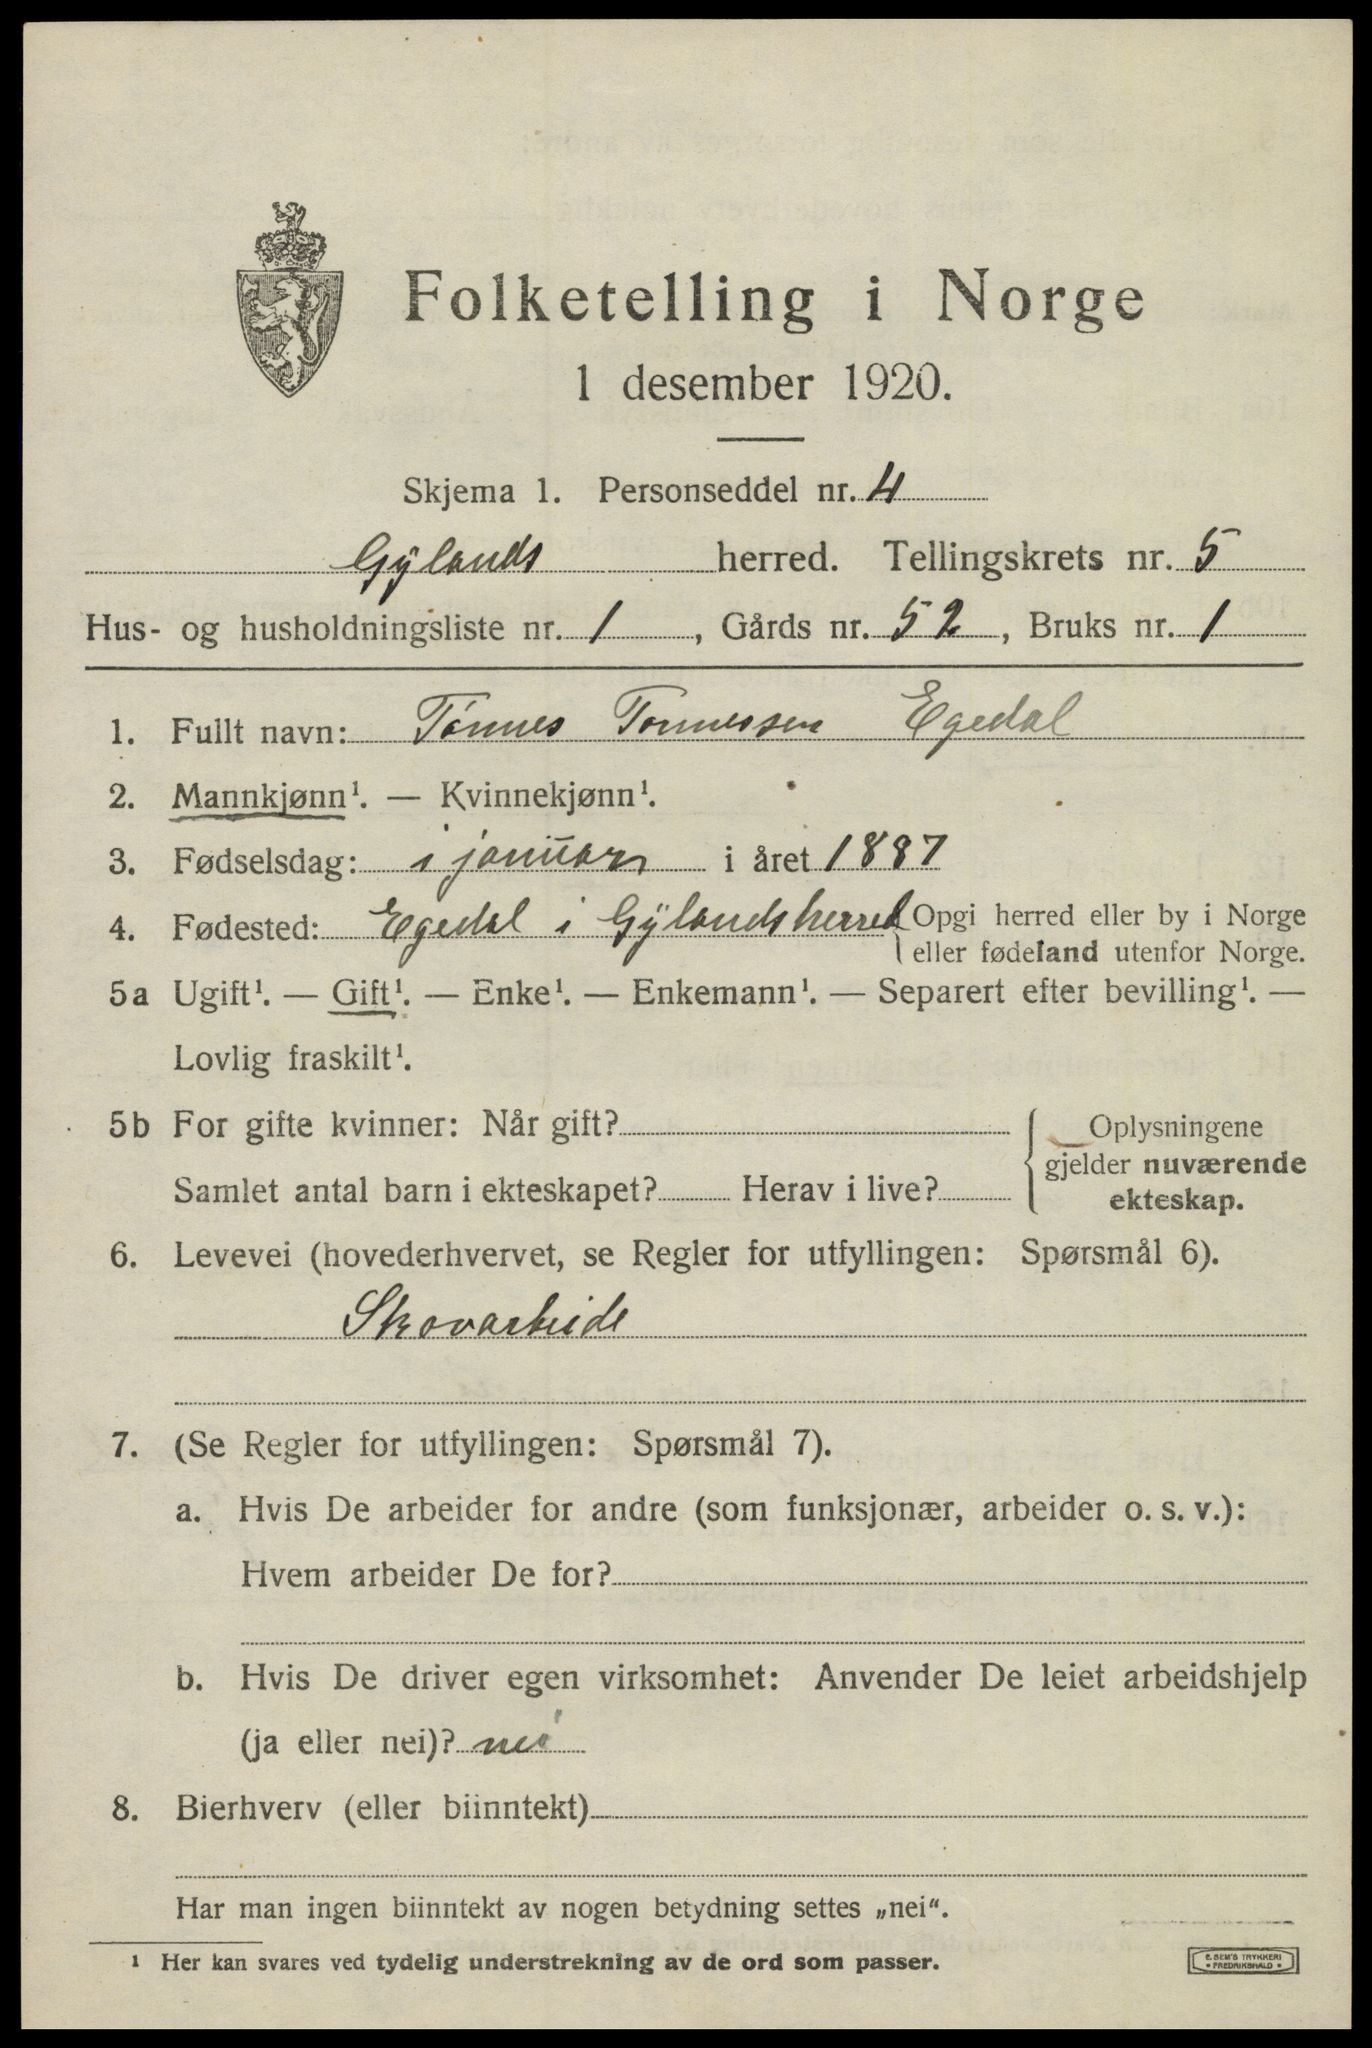 Folketelling i Norge
1 desember 1920.
Skjema 1. Personseddel nr. 4
Gÿlands herred. Tellingskrets nr. 5
Hus- og husholdningsliste nr. 1, Gårds nr. 52, Bruks nr. 1
1. Fullt navn: Tónnes Tonnessen Egedal
2. Mannkjønn¹. — Kvinnekjønn¹.
3. Fødselsdag: i januar i året 1887
4. Fødested: Egedal i Gÿlandsherred { Opgi herred eller by i Norge
eller fødeland utenfor Norge.
5a Ugift¹. — Gift¹. — Enke¹. — Enkemann¹. — Separert efter bevilling¹. —
Lovlig fraskilt¹.
5b For gifte kvinner: Når gift? { Oplysningene
gjelder nuværende
Samlet antal barn i ekteskapet? Herav i live? ekteskap.
6. Levevei (hovederhvervet, se Regler for utfyllingen: Spørsmål 6).
Skovarbeide
7. (Se Regler for utfyllingen: Spørsmål 7).
a. Hvis De arbeider for andre (som funksjonær, arbeider o. s. v.):
Hvem arbeider De for?
b. Hvis De driver egen virksomhet: Anvender De leiet arbeidshjelp
(ja eller nei)? nei
8. Bierhverv (eller biinntekt)
Har man ingen biinntekt av nogen betydning settes „nei“.
¹ Her kan svares ved tydelig understrekning av de ord som passer.
E. SEM'S TRYKKERI
• FREDRIKSHALD •